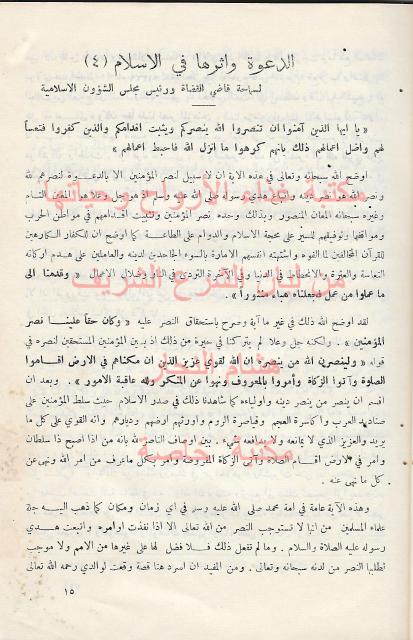 الدعوة واثرها في الاسلام (٤)
لسماحة قاضي القضاة ورئيس مجلس الشؤون الاسلامية
« يا ايها الذين آمنوا ان تنصروا الله ينصركم ويثبت اقدامكم والذين كفروا فتعساً
لهم واضل اعمالهم ذلك بانهم كرهوا ما انزل الله فاحبط اعمالهم »
اوضح الله سبحانه وتعالى في هذه الآية ان لا سبيل لنصر المؤمنين الا بالدعوة لنصرهم لله
ونصر الله هو نصر دينه واتباع هدي رسوله صلى الله عليه وسلم اذ هو جل وعلا هو المعين التام
وغيره سبحانه المعان المنصور وبذلك وحده نصر المؤمنين وتثبيت اقدامهم في مواطن الحرب
ومواقفها وتوفيقهم للسير على محجة الاسلام والدوام على الطاعة كما اوضح ان للكفار الكارهين
للقرآن المخالفين لما الفوه واشتهته انفسهم الامارة بالسوء الجاحدين لدينه والعاملين على هدم اركانه
التعاسة والعثرة والانحطاط في الدنيا وفي الآخرة التردي في النار وضلال الاعمال « وقدمنا الى
ما عملوا من عمل فجعلناه هباء منثوراً » .
لقد اوضح الله ذلك في غير ما آية وصرح باستحقاق النصر عليه « وكان حقاً علينا نصر
المؤمنين » . ولكنه جل وعلا لم يتركنا في حيرة من ذلك اذ بين المؤمنين المستحقين لنصره في
قوله « ولينصرن الله من ينصره ان الله لقوي عزيز الذين ان مكناهم في الارض اقاموا
الصلوة وآتوا الزكاة وأمروا بالمعروف ونهوا عن المنكر ولله عاقبة الامور » . وبعد ان
اقسم ان ينصر من نصر دينه واولياءه كما شاهدنا ذلك في صدر الاسلام حيث سلط المؤمنين على
صناديد العرب واكاسرة العجم وقياصرة الروم واورثهم ارضهم وديارهم وانه القوي على كل ما
يريد والعزيز الذي لا يمانعه ولا يدافعه شيء . بين اوصاف الناصر لله بانه من اذا اصبح ذا سلطان
وامر في الارض اقام الصلاة وآتى الزكاة المفروضة وامر بكل ما عرف من امر الله ونهى عن
كل ما نهى عنه .
وهذه الآية عامة في امة محمد صلى الله عليه وسلم في أي زمان ومكان كما ذهب اليه جلة
علماء المسلمين من انها لا تستوجب النصر من الله تعالى الا اذا نفذت اوامره واتبعت هدي
رسوله عليه الصلاة والسلام . وما لم تفعل ذلك فلا فضل لها على غيرها من الامم ولا موجب
لطلبها النصر من لدنه سبحانه وتعالى . ومن المفيد ان اسرد هنا قصة وقعت لوالدي رحمه الله تعالى
١٥
مكتبة غذاء الأرواح ومحياتها
من لبان الشرع الشريف
هشام النجار
مكتبة خاصة